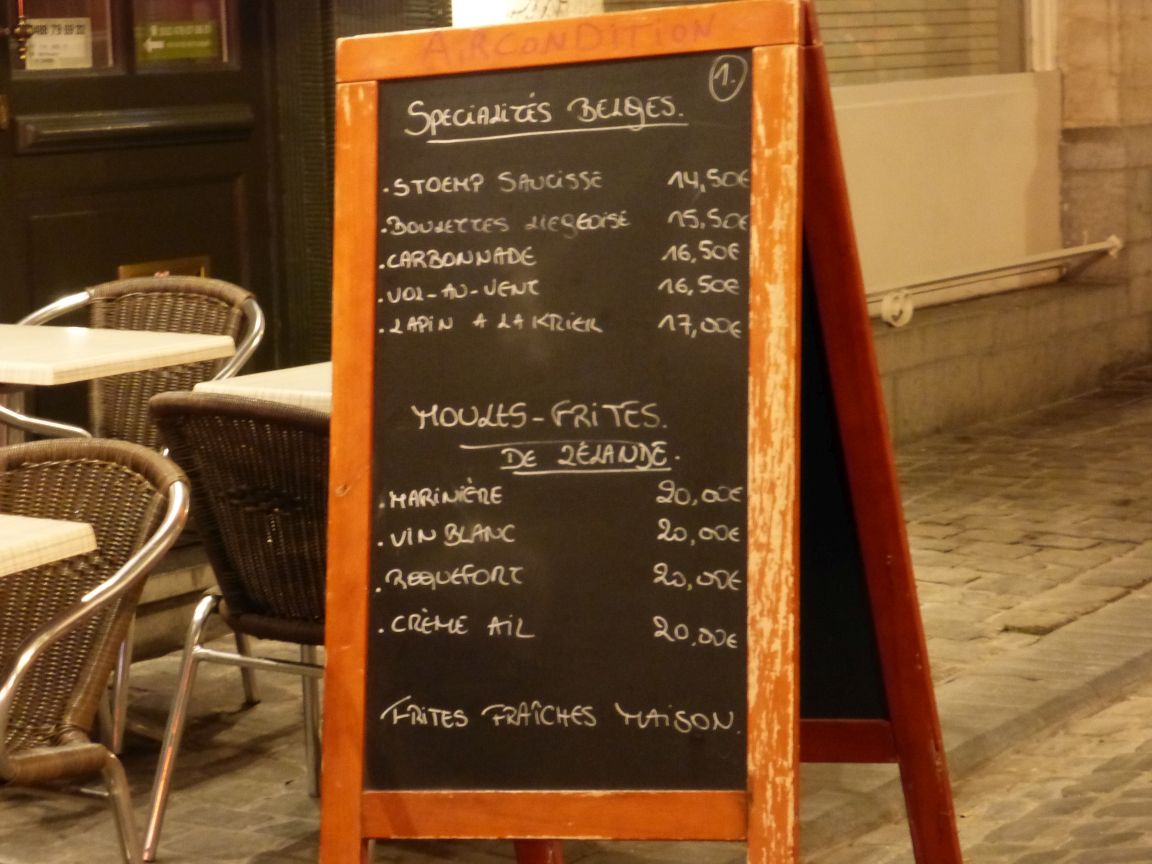 AIRCONDITION
1.
SPECIALITÉS BELGES.
. STOEMP SAUCISSE 14,50€
. BOULETTES LIEGEOISE 15,50€
. CARBONNADE 16,50€
. VOL-AU-VENT 16,50€
. LAPIN A LA KRIEK 17,00€
MOULES-FRITES.
DE ZÉLANDE.
. MARINIÈRE 20,00€
. VIN BLANC 20,00€
. ROQUEFORT 20,00€
. CRÈME AIL 20,00€
FRITES FRAÎCHES MAISON.